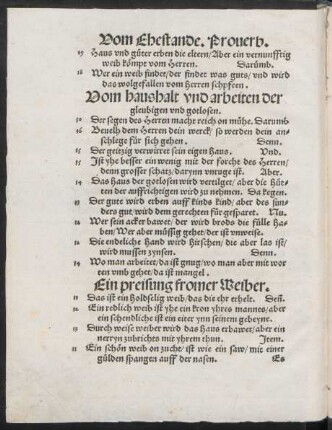 Vom Ehestande. Prouerb.
19 Haus vnd güter erben die eltern/Aber ein vernunfftig
weib kömpt vom Herren. Darumb.
18 Wer ein weib findet/der findet was guts/vnd wird
das wolgefallen vom Herren schpfeen.
Vom haushalt vnd arbeiten der
gleubigen vnd gotlosen.
10 Der segen des Herren macht reich on mühe. Darumb
16 Beuelh dem Herren dein werck/so werden dein an-
schlege für sich gehen. Denn.
15 Der geitzig verwürret sein eigen Haus. Vnd.
15 Ist yhe besser ein wenig mit der forcht des Herren/
denn grosser schatz/darynn vnruge ist. Aber.
14 Das Haus der gotlosen wird vertilget/aber die Hüt-
ten der auffrichtigen wird zu nehmen. Da kegen.
13 Der gute wird erben auff kinds kind/aber des sun-
ders gut/wird dem gerechten für gesparet. Nu.
12 Wer sein acker bawet/der wird brods die fülle ha-
ben/Wer aber müssig gehet/der ist vnweise.
12 Die endeliche Hand wird Hirschen/die aber las ist/
wird mussen zynsen. Denn.
14 Wo man arbeitet/da ist gnug/wo man aber mit wor
ten vmb gehet/da ist mangel.
Ein preisung fromer Weiber.
11 Das ist ein Holdselig weib/das die ehr erhelt. Deñ.
12 Ein redlich weib ist yhr ein kron yhres mannes/aber
ein schendliche ist ein eiter ynn seinem gebeyne.
14 Durch weise weiber wird das Haus erbawet/aber ein
nerryn zubrichts mit yhrem thun. Item.
11 Ein schön weib on zucht/ist wie ein saw/mit einer
gülden spangen auff der nasen. Es